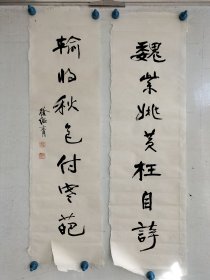 魏紫姚黄枉自誇
輸将秋色付寒葩